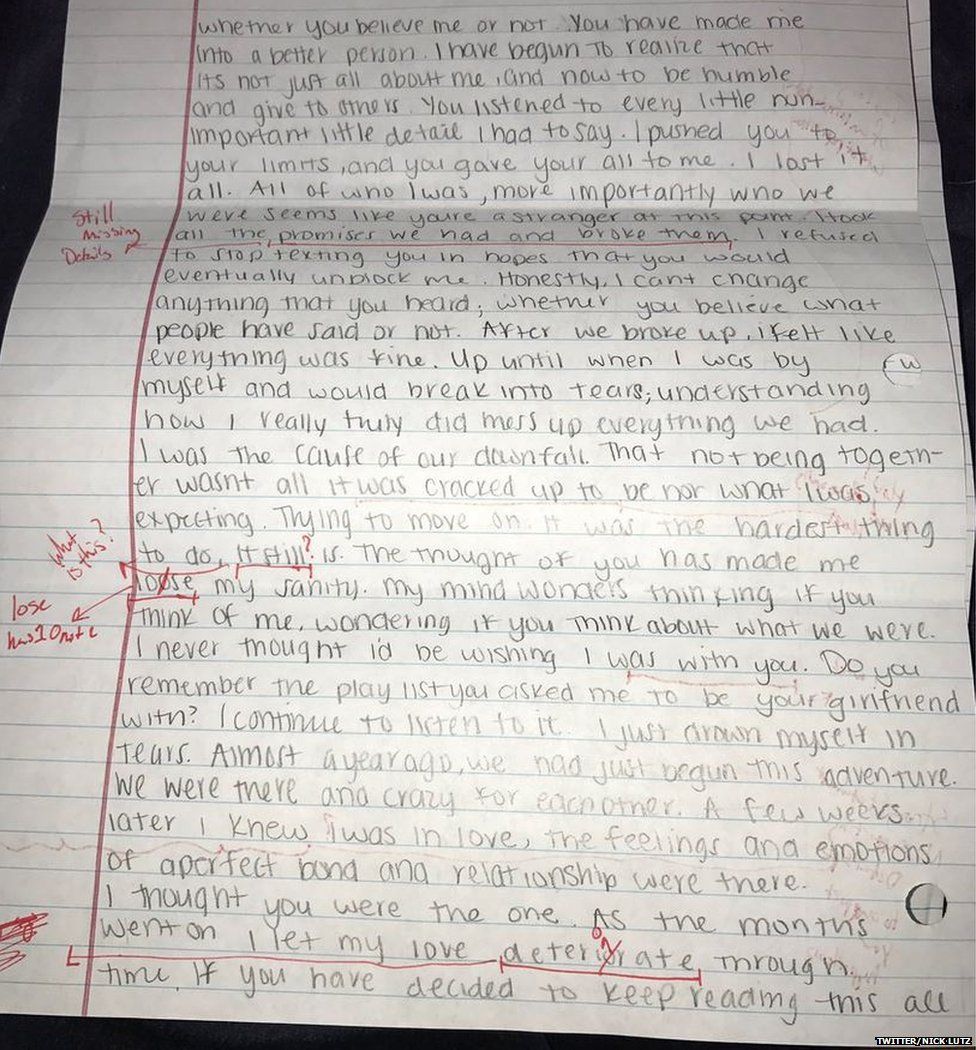 whether you believe me or not. You have made me
into a better person. I have begun to realize that
its not just all about me, and how to be humble
and give to others. You listened to every little non-
important little detail I had to say. I pushed you to
your limits, and you gave your all to me. I lost it
all. All of who I was, more importantly who we
were seems like youre a stranger at this point. I took
Still
Missing
Details
all the promises we had and broke them. I refused
to stop texting you in hopes that you would
eventually unblock me. Honestly, I cant change
anything that you heard; whether you believe what
people have said or not. After we broke up, i felt like
everything was fine. Up until when I was by
myself and would break into tears; understanding
how I really truly did mess up everything we had.
I was the cause of our downfall. That not being togeth-
er wasnt all it was cracked up to be nor what I was
expecting. Trying to move on. It was the hardest thing
What
is this?
to do, it still? is. The thought of you has made me
loose my sanity. My mind wonders thinking if you
lose
has 1 O not 2
think of me, wondering if you think about what we were.
I never thought id be wishing I was with you. Do you
remember the play list you asked me to be your girlfriend
with? I continue to listen to it. I just drown myself in
tears. Almost a year ago, we had just begun this adventure.
We were there and crazy for eachother. A few weeks
later I knew I was in love, the feelings and emotions
of a perfect bond and relationship were there.
I thought you were the one. As the months
went on I let my love deteriorate through
time. If you have decided to keep reading this all
TWITTER/NICK LUTZ